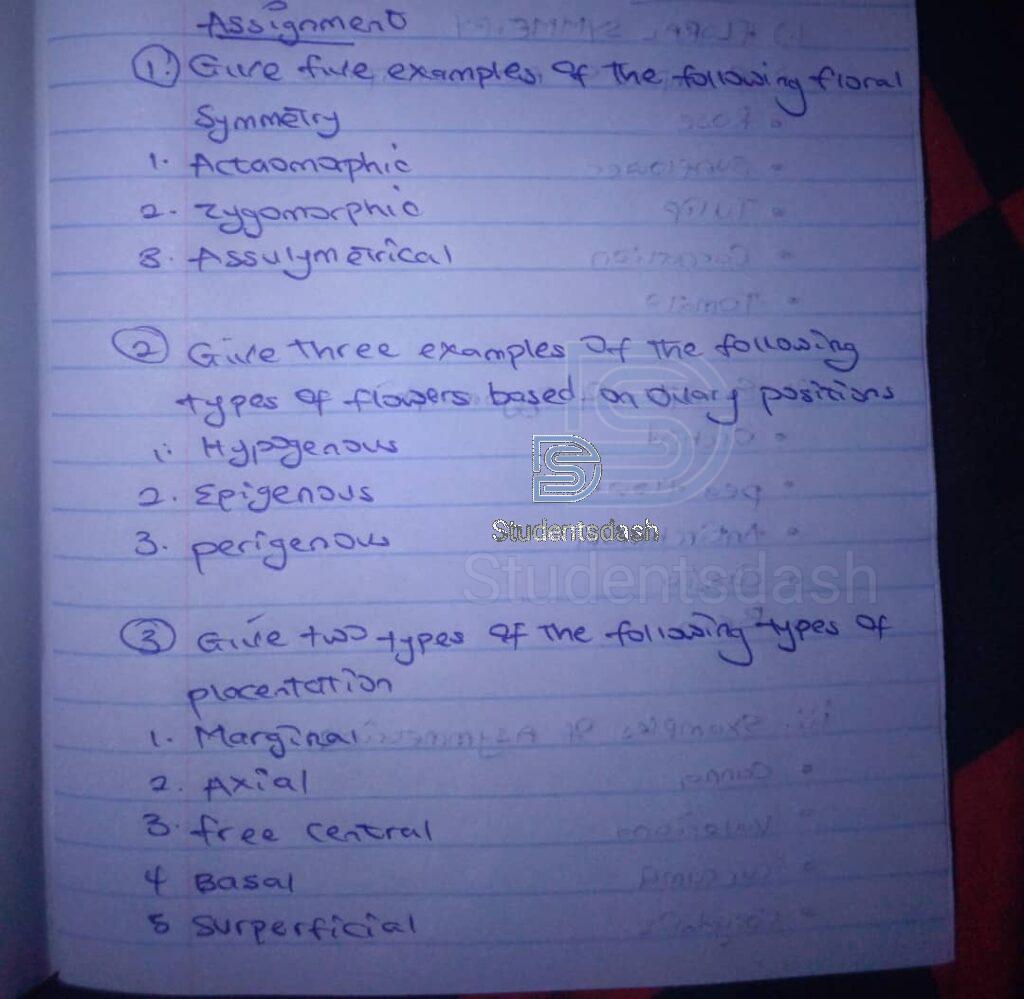 Assignment
1. Give five examples of the following floral
Symmetry
1. Actaomorphic
2. Zygomorphic
3. Assulymetrical
2 Give three examples of the following
types of flowers based on ovary positions
1: Hypogenous
2. Epigenous
3. perigenous
Studentsdash
Studentsdash
3 Give two types of the following types of
placentation
1. Marginal
2. Axial
3. free central
4 Basal
5 Surperficial